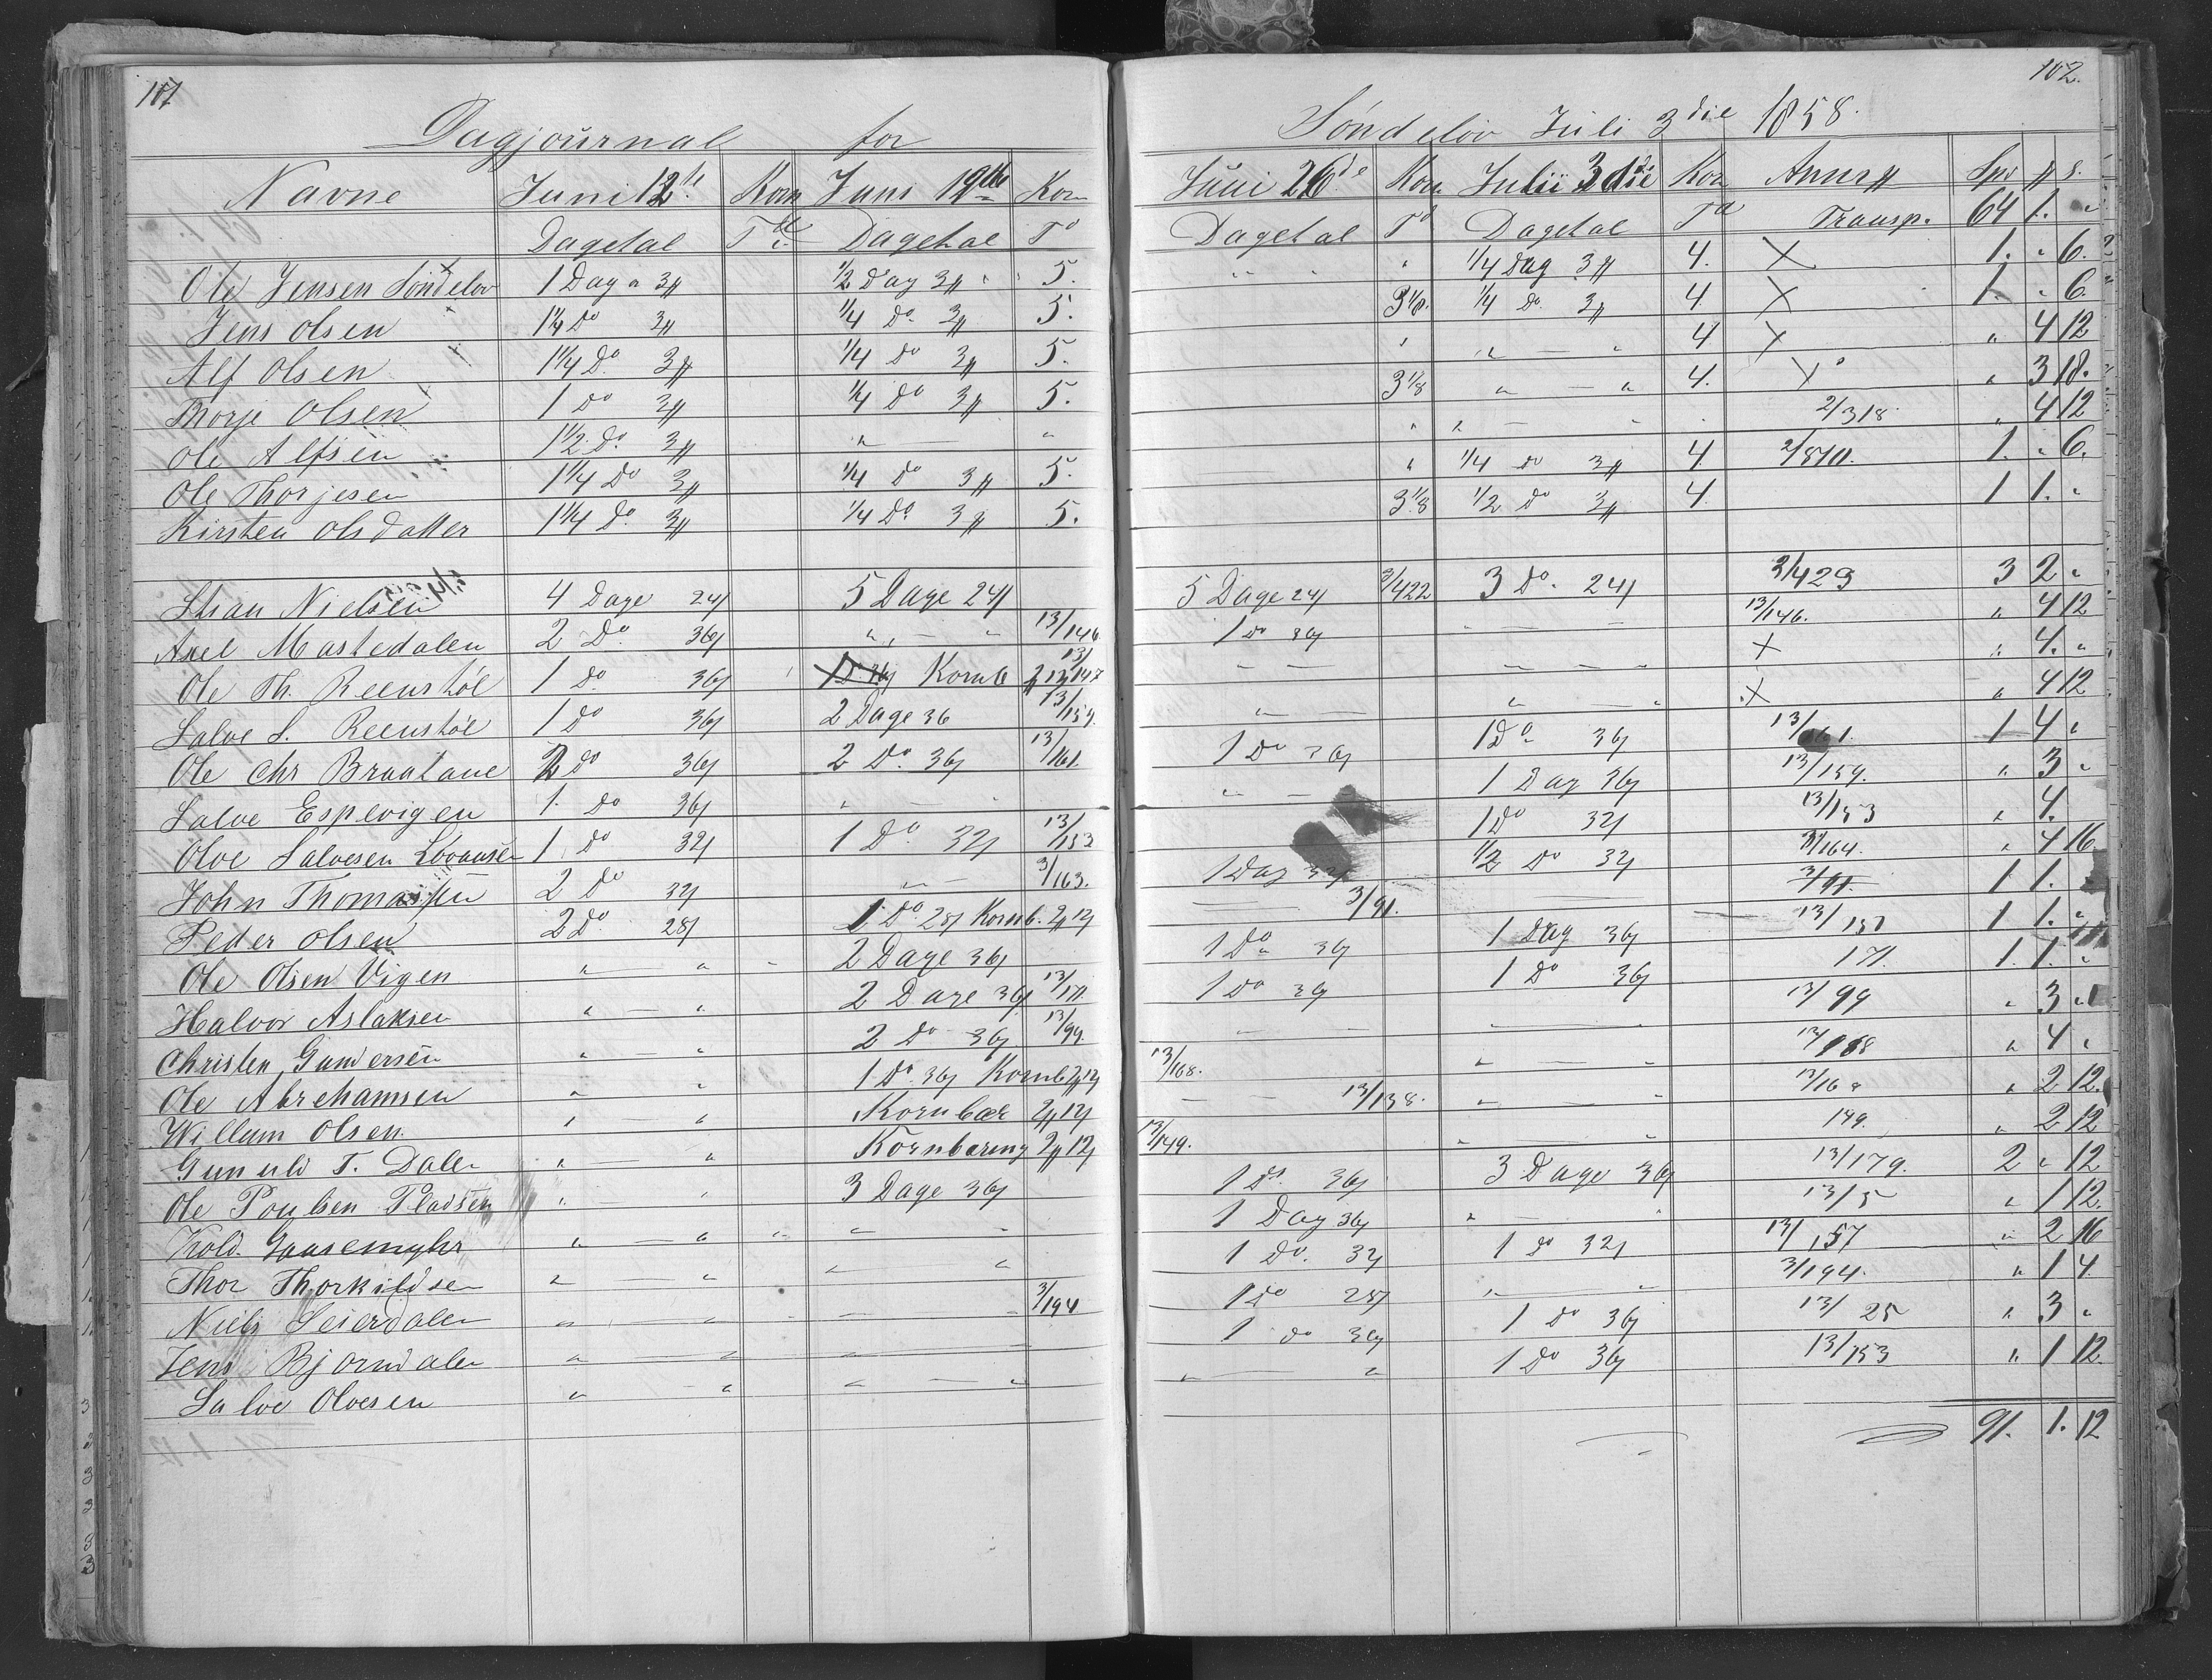 101
Dagjournal for
Navne Juni 12te Korn Juni 19de Korn
Dagetal Td Dagetal Td
Ole Jensen Søndeløv 1 Dag a 3# ½ Dag 3# 5.
Jens Olsen 1¼ Do 3# ¼ Do 3# 5.
Alf Olsen 1¼ Do 3# ¼ Do 3# 5.
Thorje Olsen 1 Do 3# ¼ Do 3# 5.
Ole Alfsen 1½ Do 3# " — "
Ole Thorjesen 1¼ Do 3# ¼ Do 3# 5.
Kirsten Olsdatter 1¼ Do 3# ¼ Do 3# 5.
Nielsen 4 Dage 24 5 Dage 24
Axel Mastedalen 2 Do 36 " — " 13/146
Ole Th. Reenstøl 1 Do 36 Kornb 2# 12 13/147
Salve S. Reenstøl 1 Do 36 2 Dage 36 13/159.
Ole Chr Braatane 2 Do 36 2 Do 36 13/161.
Salve Espevigen 1 Do 36 " — "
Olve Salvesen 1 Do 32 1 Do 32 13/153
John Thomassen 2 Do 32 " — 3/163.
Peder Olsen 2 Do 28 1 Do 28 Kornb. 2# 12
Ole Olsen Vigen " — " 2 Dage 36
Halvor Aslaksen " — " 2 Dage 36 13/171.
Christen Gundersen " — " 2 Do 36 13/99.
Ole Abrehamsen " " 1 Do 36 Kornb 2# 12
Willum Olsen " " Kornbær 2# 12
Gunuld T. Dalen " — " Kornbæring 2# 12
Ole Poulsen Pladsen " — " 3 Dage 36
Kold. Gaasemyhr " — " " — "
Thor Thorkildsen " — " " "
Niels Seierdalen " — " — 3/194
Jens Bjorndalen " — " " — "
Salve Olvesen " — " " — "
102.
Søndeløv Juli 3die 1858.
Juni 26de Korn Julii 3die Korn Anm# Spd # s.
Dagetal Td Dagetal Td Transp. 64 1. "
" " " ¼ Dag 3# 4. X 1. " 6.
3⅛. ¼ Do 3# 4 X 1. " 6.
" " — " 4 X " 4 12
3⅛ " — " 4. X " 3 18.
" " — " 2/318 " 4 12
" ¼ Do 3# 4. 1. " 6.
3⅛ ½ Do 3# 4. 1 1. "
5 Dage 24 3/422 3 Do 24 3/423 3 2 "
1 Do 36 " — " 13/146. " 4 12
" — " — " X " 4. "
" — " — " X " 4 12
1 Do 36 1 Do 36 13/161. 1 4 "
" — 1 Dag 36 13/159. " 3 "
1 Do 32 13/153 " 4.
1 Dag 32 ½ Do 32 3/164. " 4 16
— 3/91. — 3/91. 1 1.
1 Do 36 1 Dag 36 13/157 1 1. "
1 Do 36 1 Do 36 171. 1. 1. "
" — " — " 13/99 " 3 "
13/168. " — " " 4 "
— 13/138. " — " 13/168 " 2 12.
13/149. " — " 149. " 2 12
1 Do 36 3 Dage 36 13/179. 2 " 12
1 Dag 36 " — " 13/5 " 1 12.
1 Do 32 1 Do 32 13/157 " 2 16
1 Do 28 " — " 3/194. " 1 4.
1 Do 36 1 Do 36 13/25 " 3 "
" — " 1 Do 36 13/153 " 1 12.
91. 1. 12